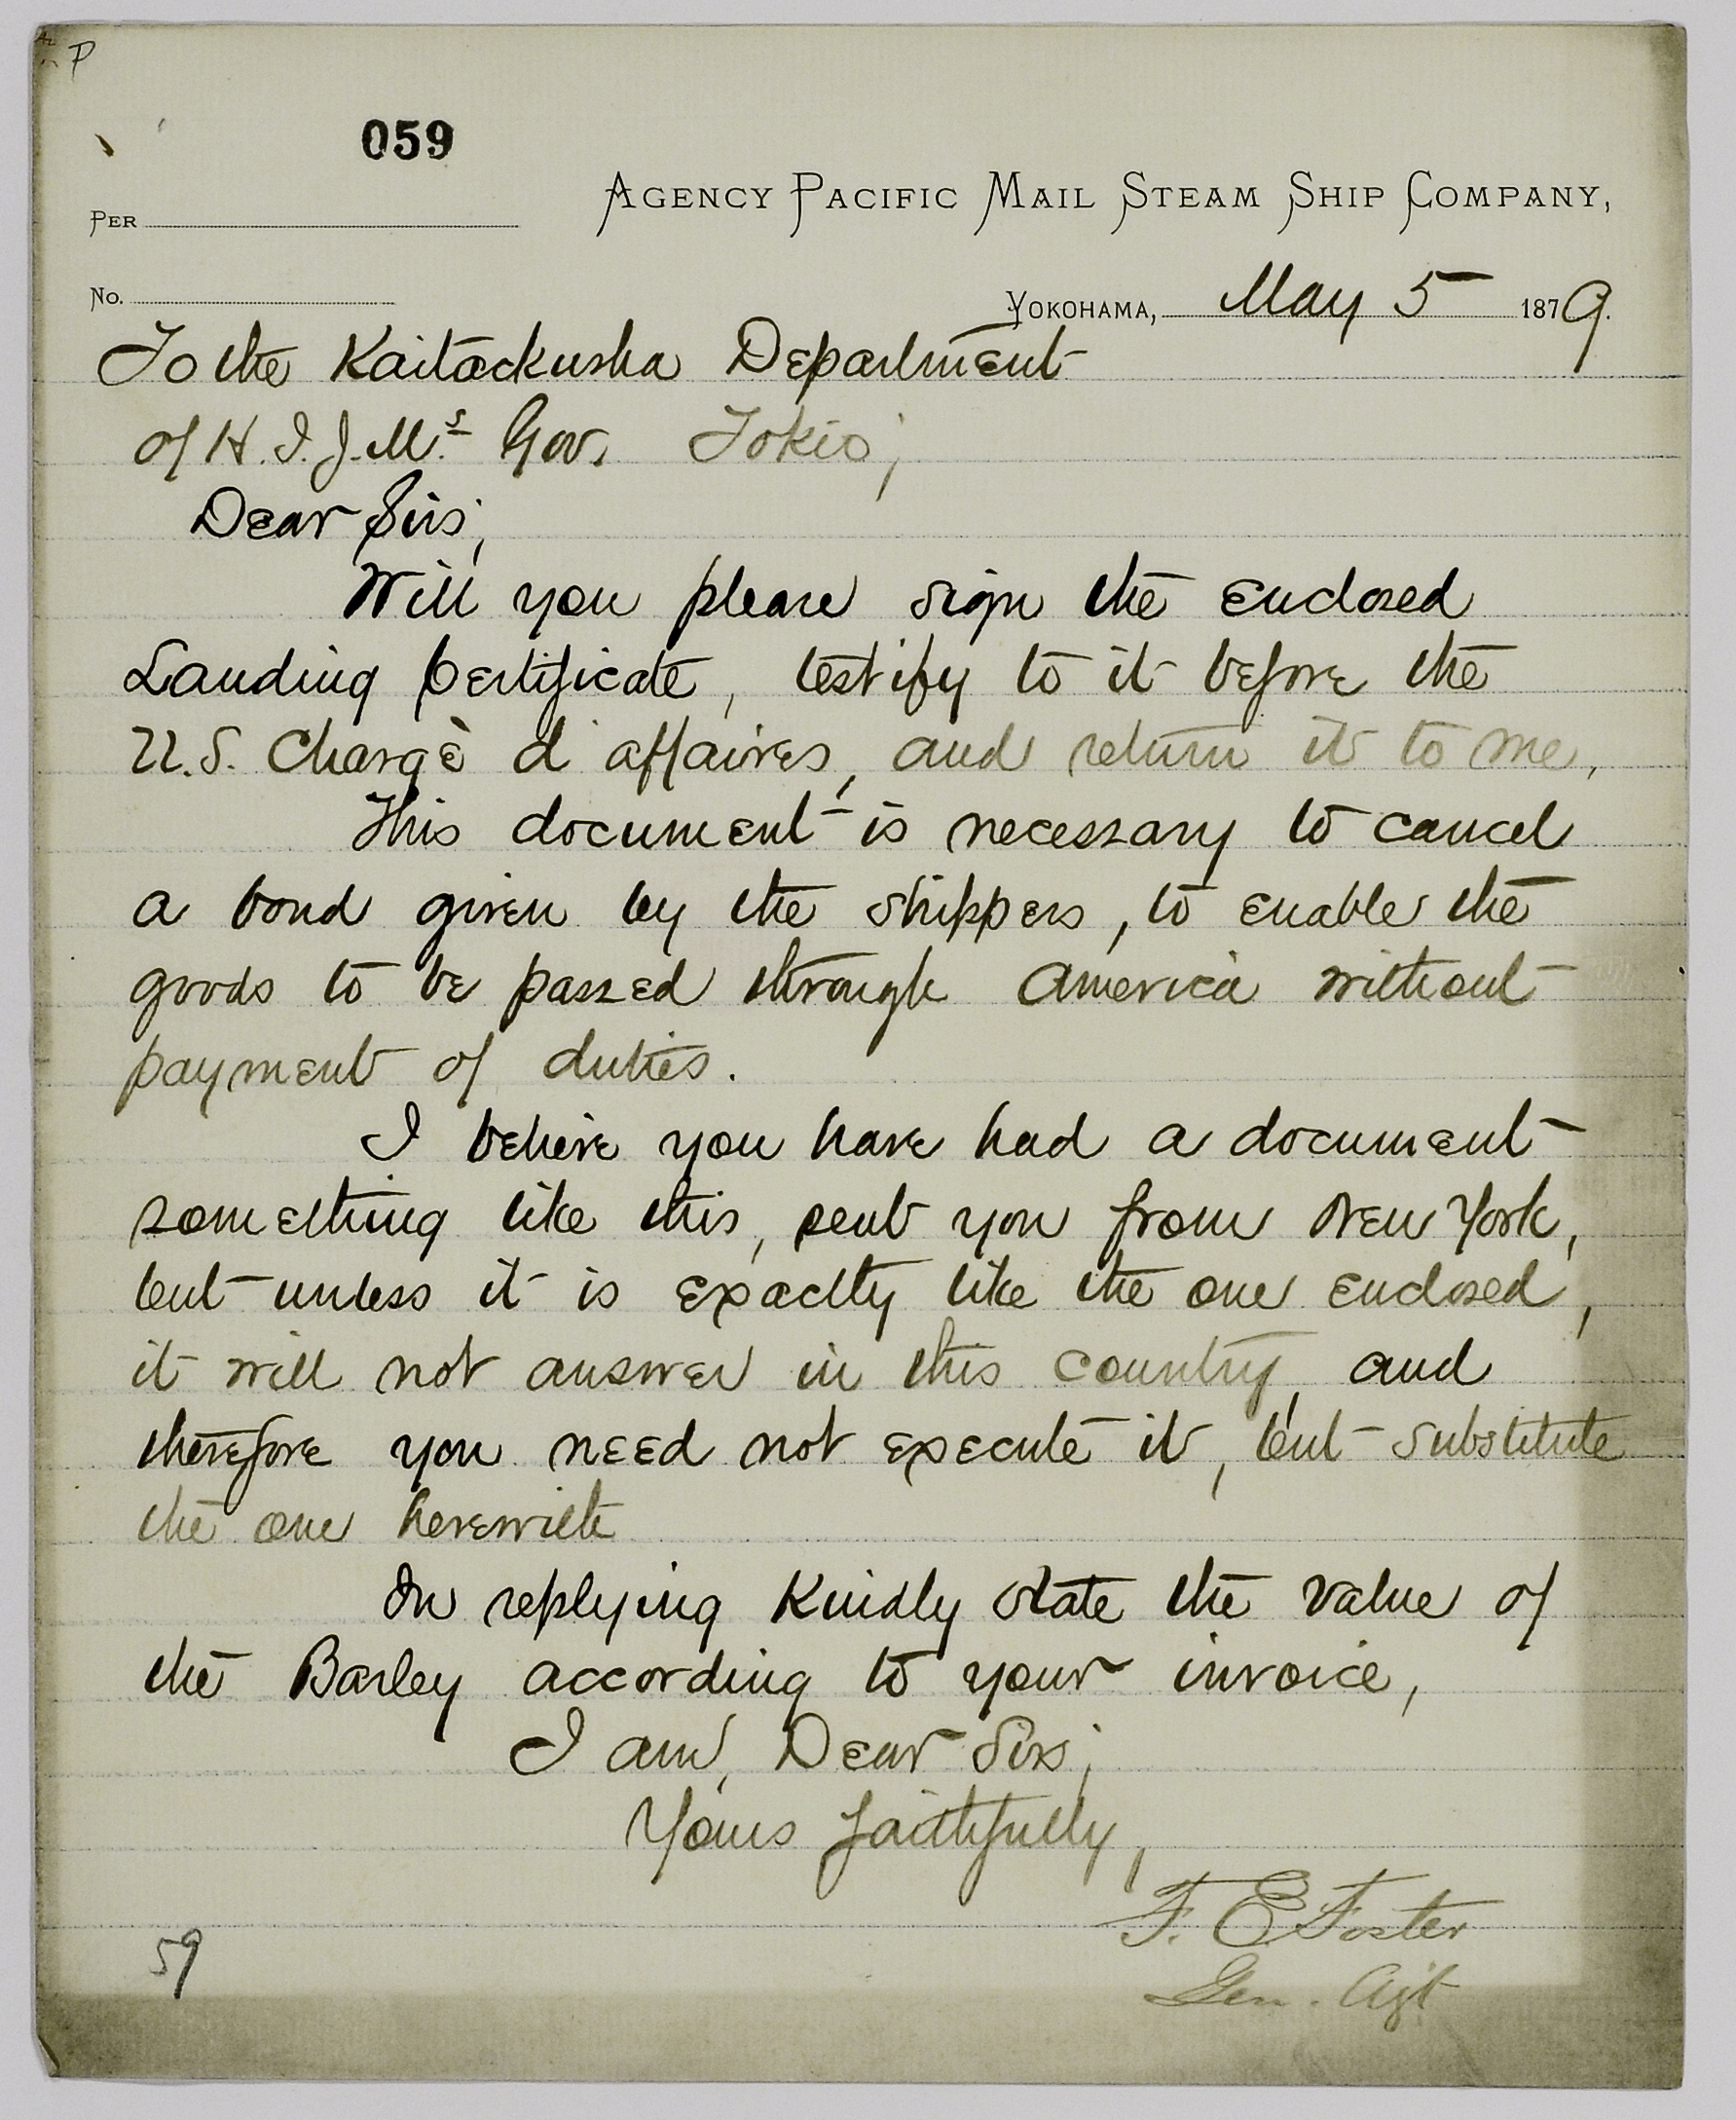 P
059
AGENCY PACIFIC MAIL STEAM SHIP COMPANY,
PER
No.
YOKOHAMA, May 5 1879.
To the Kaitackusha Department
of H. I. J. M.s Gov. Tokio;
Dear Sirs;
Will you please sign the enclosed
Landing Certificate, testify to it before the
U.S. Chargè d'affaires, and return it to me.
This document is necessary to cancel
a bond given by the shippers, to enable the
goods to be passed through America without
payment of duties.
I believe you have had a document
something like this, sent you from New York,
but unless it is exactly like the one enclosed,
it will not answer in this country, and
therefore you need not execute it, but substitute
the one herewith
In replying Kindly state the value of
the Barley according to your invoice,
I am, Dear Sirs;
Yours faithfully,
F. E Foster
Gen. Agt
59